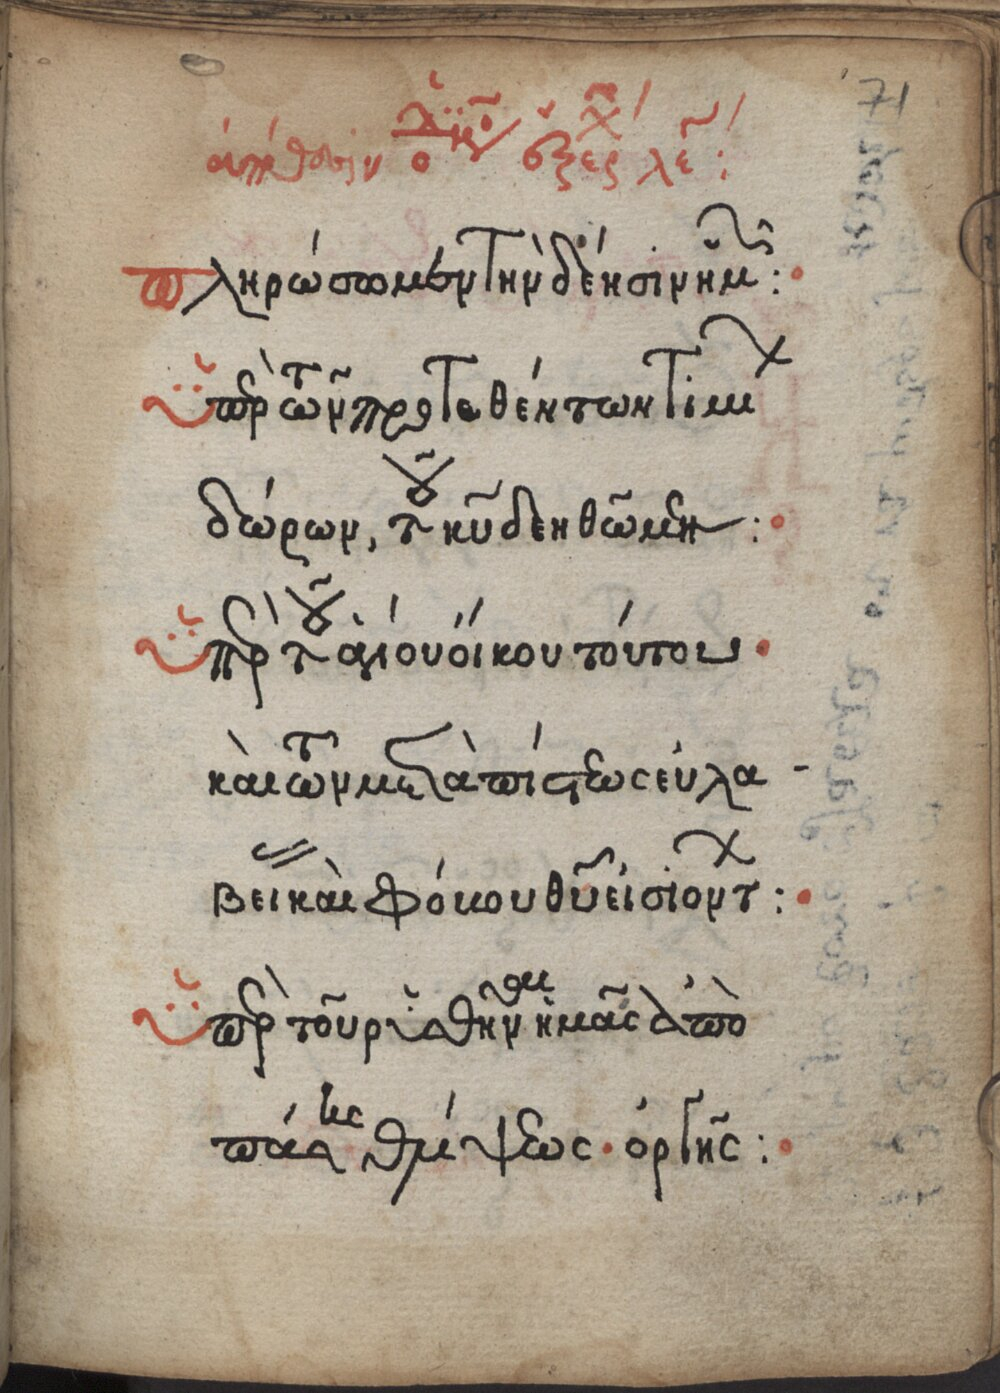 71
Πληρώσωμεν τὴν δέησιν ἡμῶν:
ὑπὲρ τῶν προτεθέντων τιμίων
δώρων, τοῦ κυ δεηθῶμεν:
ὑπὲρ τοῦ ἁγίου οἴκου τούτου
καὶ τῶν μετὰ πίστεως εὐλα-
βείας καὶ φόβου θυ εἰσιόντων:
ὑπὲρ τοῦ ῥυσθῆναι ἡμᾶς ἀπὸ
πάσης θλίψεως · ὀργῆς: